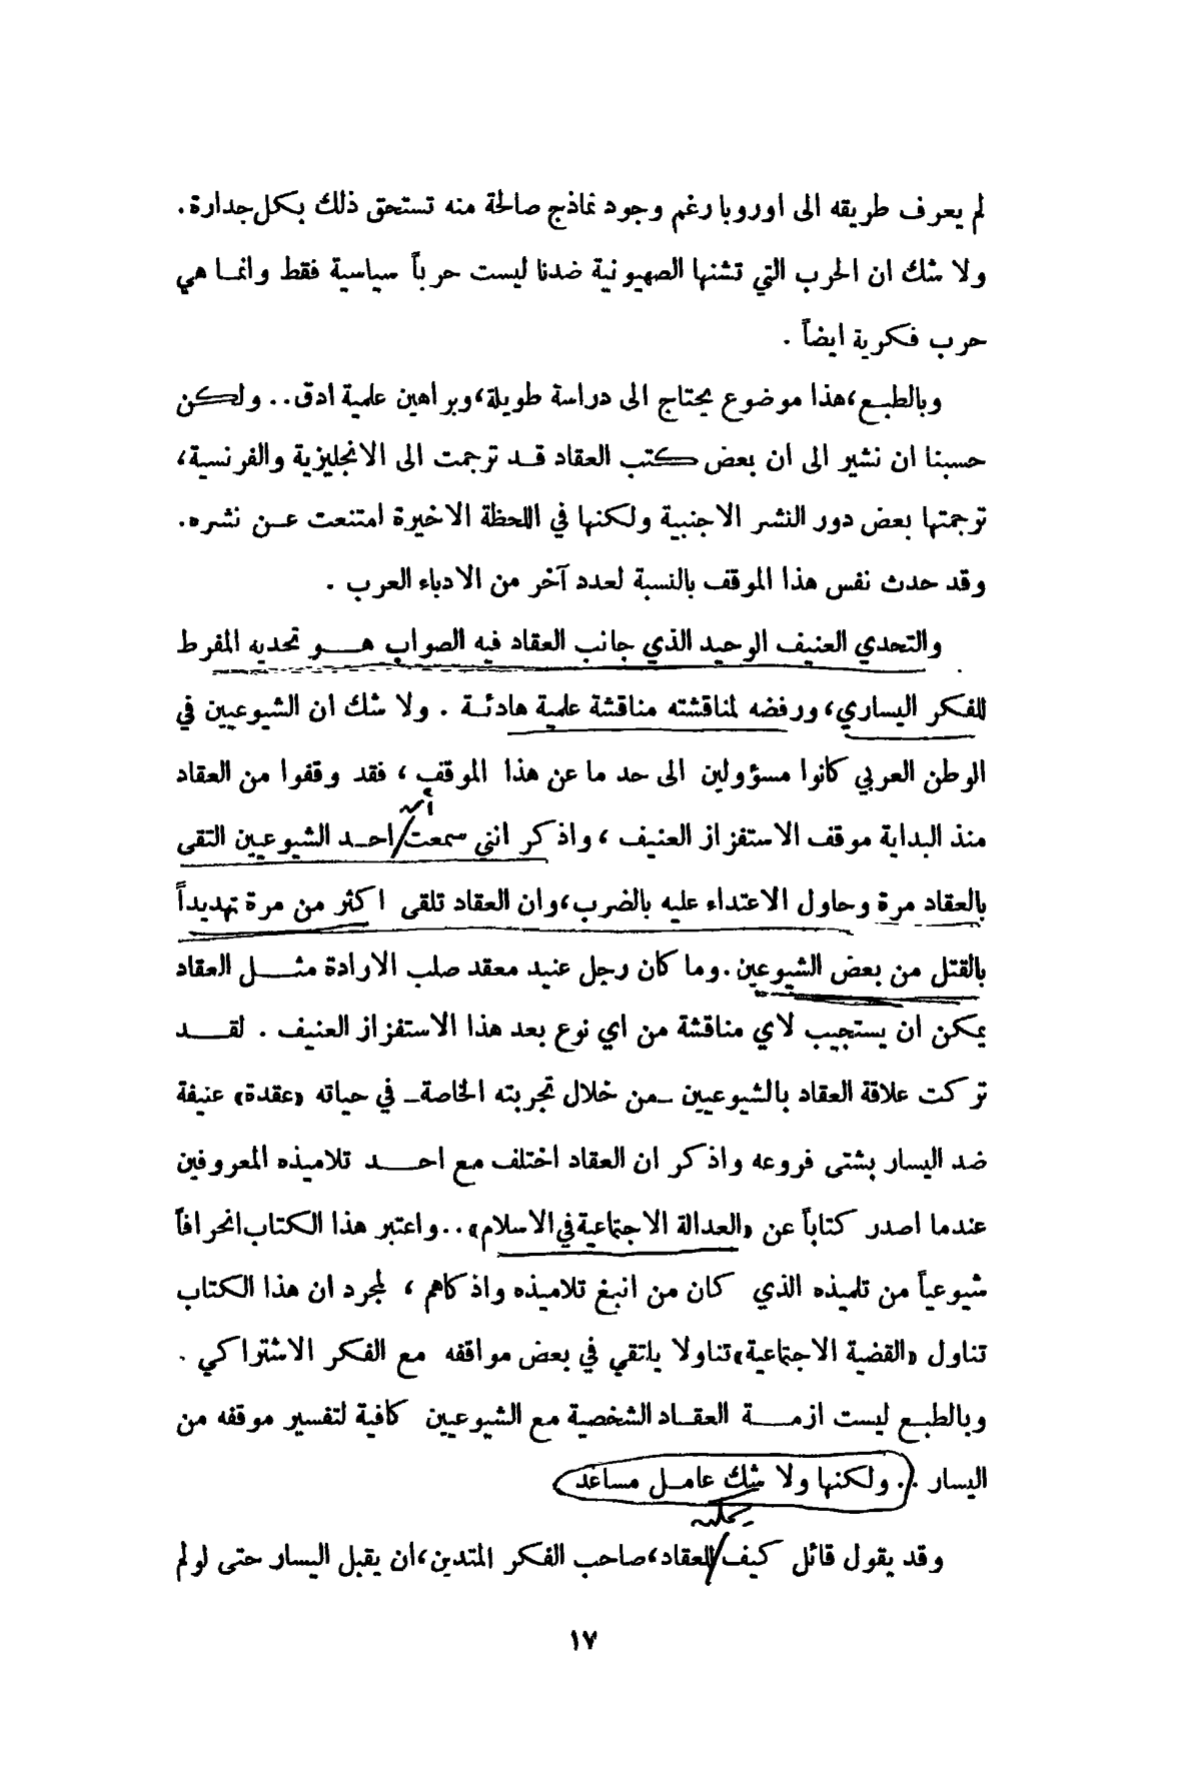 لم يعرف طريقه الى اوروبا رغم وجود نماذج صالحة منه تستحق ذلك بكل جدارة.
ولا شك ان الحرب التي تشنها الصهيونية ضدنا ليست حرباً سياسية فقط وانما هي
حرب فكرية ايضاً .
وبالطبع، هذا موضوع يحتاج الى دراسة طويلة، وبراهين علمية ادق.. ولكن
حسبنا ان نشير الى ان بعض كتب العقاد قد ترجمت الى الانجليزية والفرنسية،
ترجمتها بعض دور النشر الاجنبية ولكنها في اللحظة الاخيرة امتنعت عن نشره.
وقد حدث نفس هذا الموقف بالنسبة لعدد آخر من الادباء العرب .
والتحدي العنيف الوحيد الذي جانب العقاد فيه الصواب هو تحديه المفرط
للفكر اليساري، ورفضه لمناقشته مناقشة علمية هادئة . ولا شك ان الشيوعيين في
الوطن العربي كانوا مسؤولين الى حد ما عن هذا الموقف ، فقد وقفوا من العقاد
أن
منذ البداية موقف الاستفزاز العنيف ، واذكر انني سمعت/احد الشيوعيين التقى
بالعقاد مرة وحاول الاعتداء عليه بالضرب، وان العقاد تلقى اكثر من مرة تهديداً
بالقتل من بعض الشيوعين . وما كان رجل عنيد معقد صلب الارادة مثل العقاد
يمكن ان يستجيب لاي مناقشة من اي نوع بعد هذا الاستفزاز العنيف . لقد
تركت علاقة العقاد بالشيوعيين ــ من خلال تجربته الخاصة ــ في حياته «عقدة» عنيفة
ضد اليسار بشتى فروعه واذكر ان العقاد اختلف مع احد تلاميذه المعروفين
عندما اصدر كتاباً عن «العدالة الاجتماعية في الاسلام».. واعتبر هذا الكتاب انحرافاً
شيوعياً من تلميذه الذي كان من انبغ تلاميذه واذكاهم ، لمجرد ان هذا الكتاب
تناول «القضية الاجتماعية» تناولا يلتقي في بعض مواقفه مع الفكر الاشتراكي .
وبالطبع ليست ازمة العقاد الشخصية مع الشيوعيين كافية لتفسير موقفه من
اليسار .. ولكنها ولا شك عامل مساعد
يمكن
وقد يقول قائل كيف/للعقاد، صاحب الفكر المتدين، ان يقبل اليسار حتى لو لم
١٧